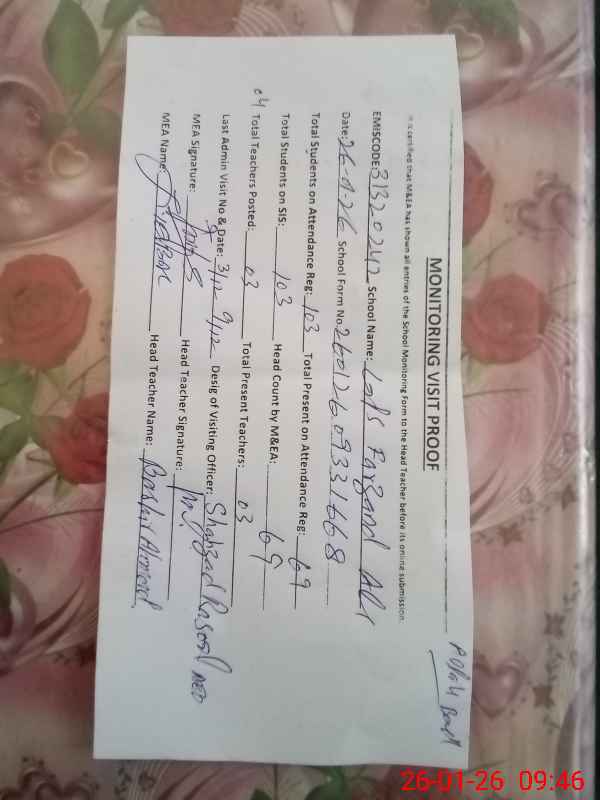 MONITORING VISIT PROOF
It is certified that M&EA has shown all entries of the School Monitoring Form to the Head Teacher before its online submission.
EMISCODE 31320242 School Name: Farzand Ali
Date: 26-1-26 School Form No 26012609331668
Total Students on Attendance Reg: 103 Total Present on Attendance Reg: 69
Total Students on SIS: 103 Head Count by M&EA: 69
04 Total Teachers Posted: 03 Total Present Teachers: 03
Last Admin Visit No & Date: Desig of Visiting Officer: Shahzad Rasool AEO
MEA Signature: Head Teacher Signature:
MEA Name: Head Teacher Name: Bashir Ahmad
26-01-26 09:46